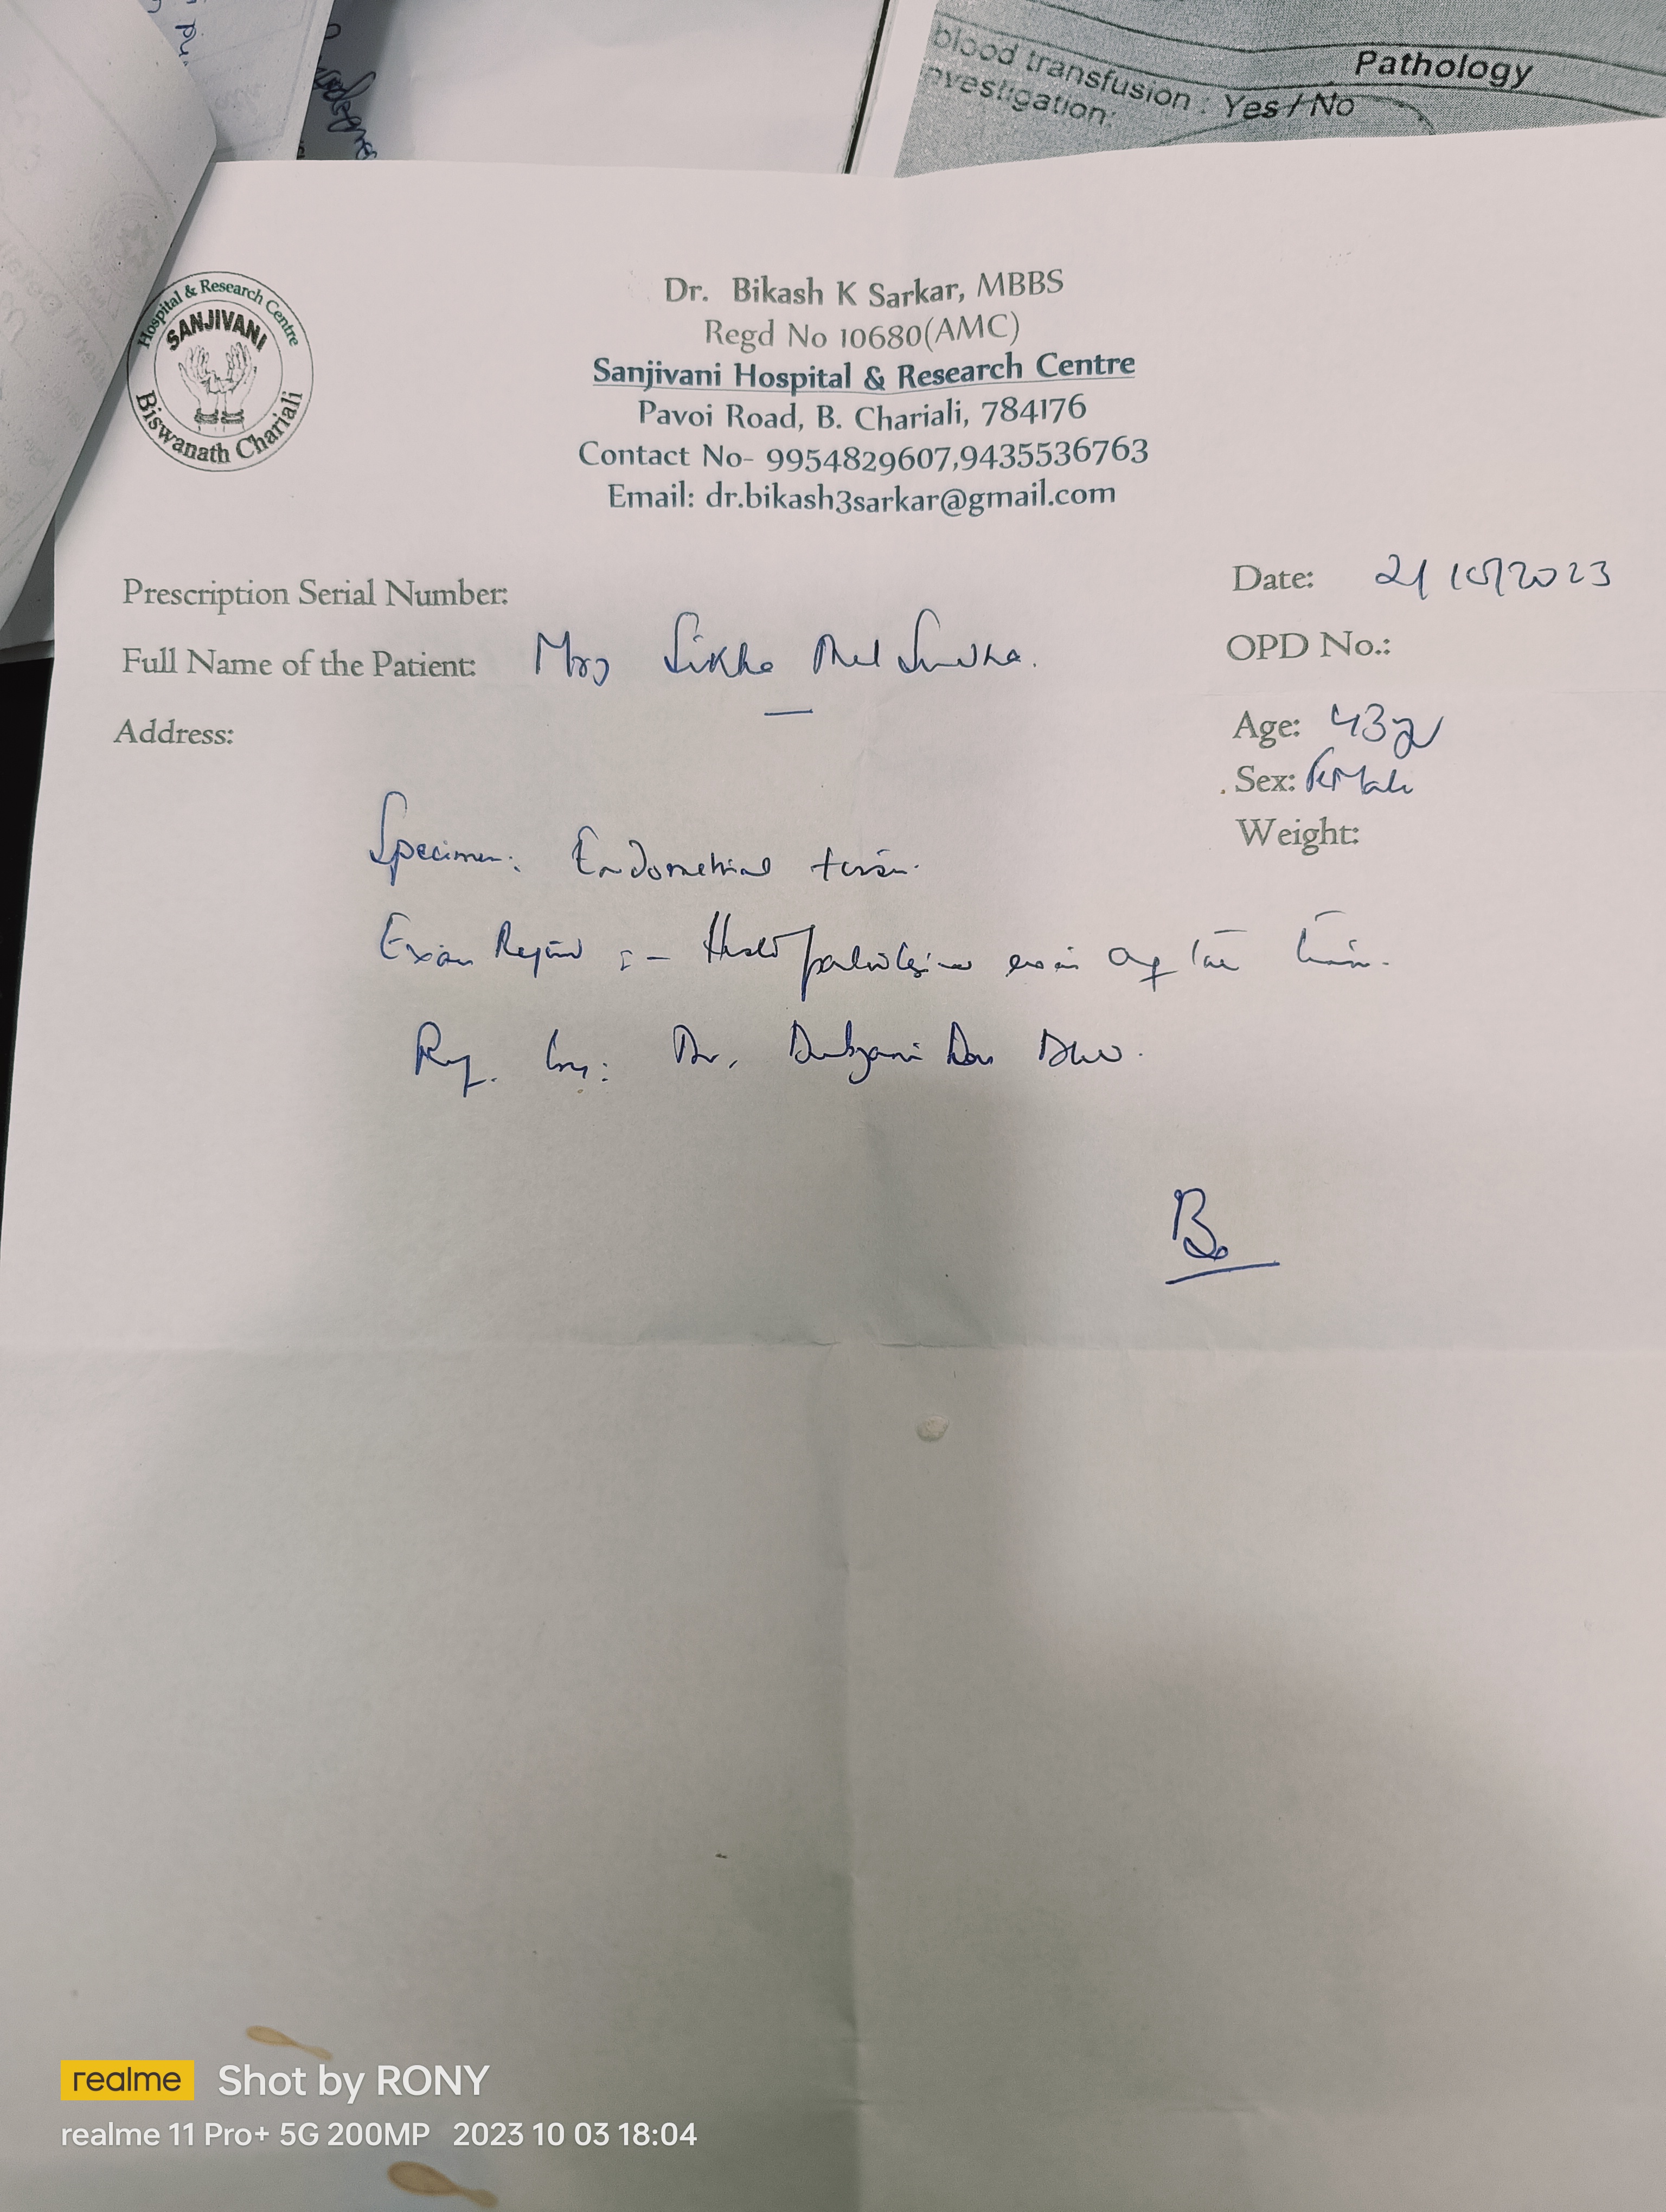 Pathology
blood transfusion : Yes / No
investigation:
Hospital & Research Centre
SANJIVANI
Biswanath Chariali
Dr. Bikash K Sarkar, MBBS
Regd No 10680(AMC)
Sanjivani Hospital & Research Centre
Pavoi Road, B. Chariali, 784176
Contact No- 9954829607,9435536763
Email: dr.bikash3sarkar@gmail.com
Prescription Serial Number:
Date: 2/10/2023
Full Name of the Patient: Mrs Sikha
OPD No.:
Address:
Age: 43y
Sex: Female
Weight:
Specimen: Endometrial tissue.
Exam Reqd :- Histopathological exam of the tissue.
Ref. by: Dr.
realme Shot by RONY
realme 11 Pro+ 5G 200MP 2023 10 03 18:04